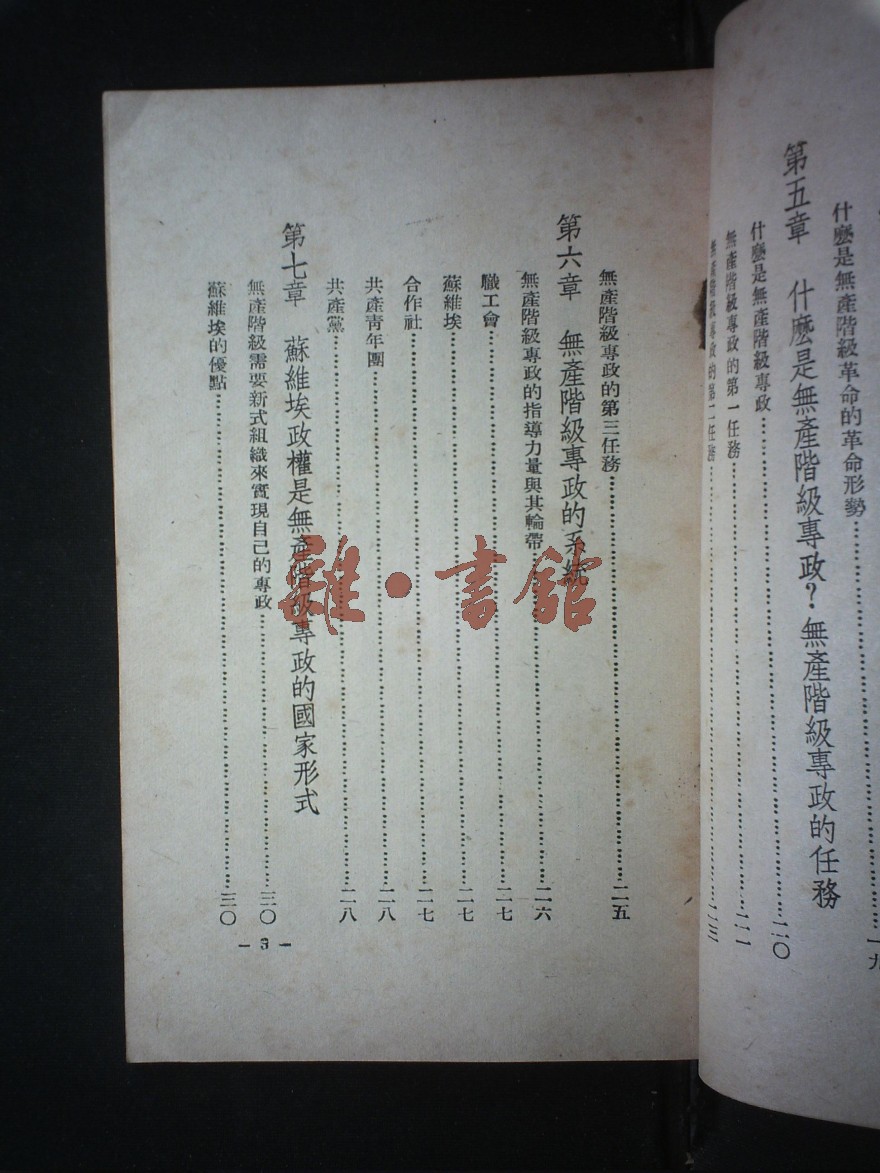 什麼是無產階級革命的革命形勢……一九
第五章　什麼是無產階級專政？無產階級專政的任務
什麼是無產階級專政……二〇
無產階級專政的第一任務……二一
無產階級專政的第二任務……二三
無產階級專政的第三任務……二五
第六章　無產階級專政的系統
無產階級專政的指導力量與其輪帶……二六
職工會……二七
蘇維埃……二七
合作社……二七
共產靑年團……二八
共產黨……二八
第七章　蘇維埃政權是無產階級專政的國家形式
無產階級需要新式組織來實現自己的專政……三〇
蘇維埃的優點……三〇
— 3 —
雜·書館